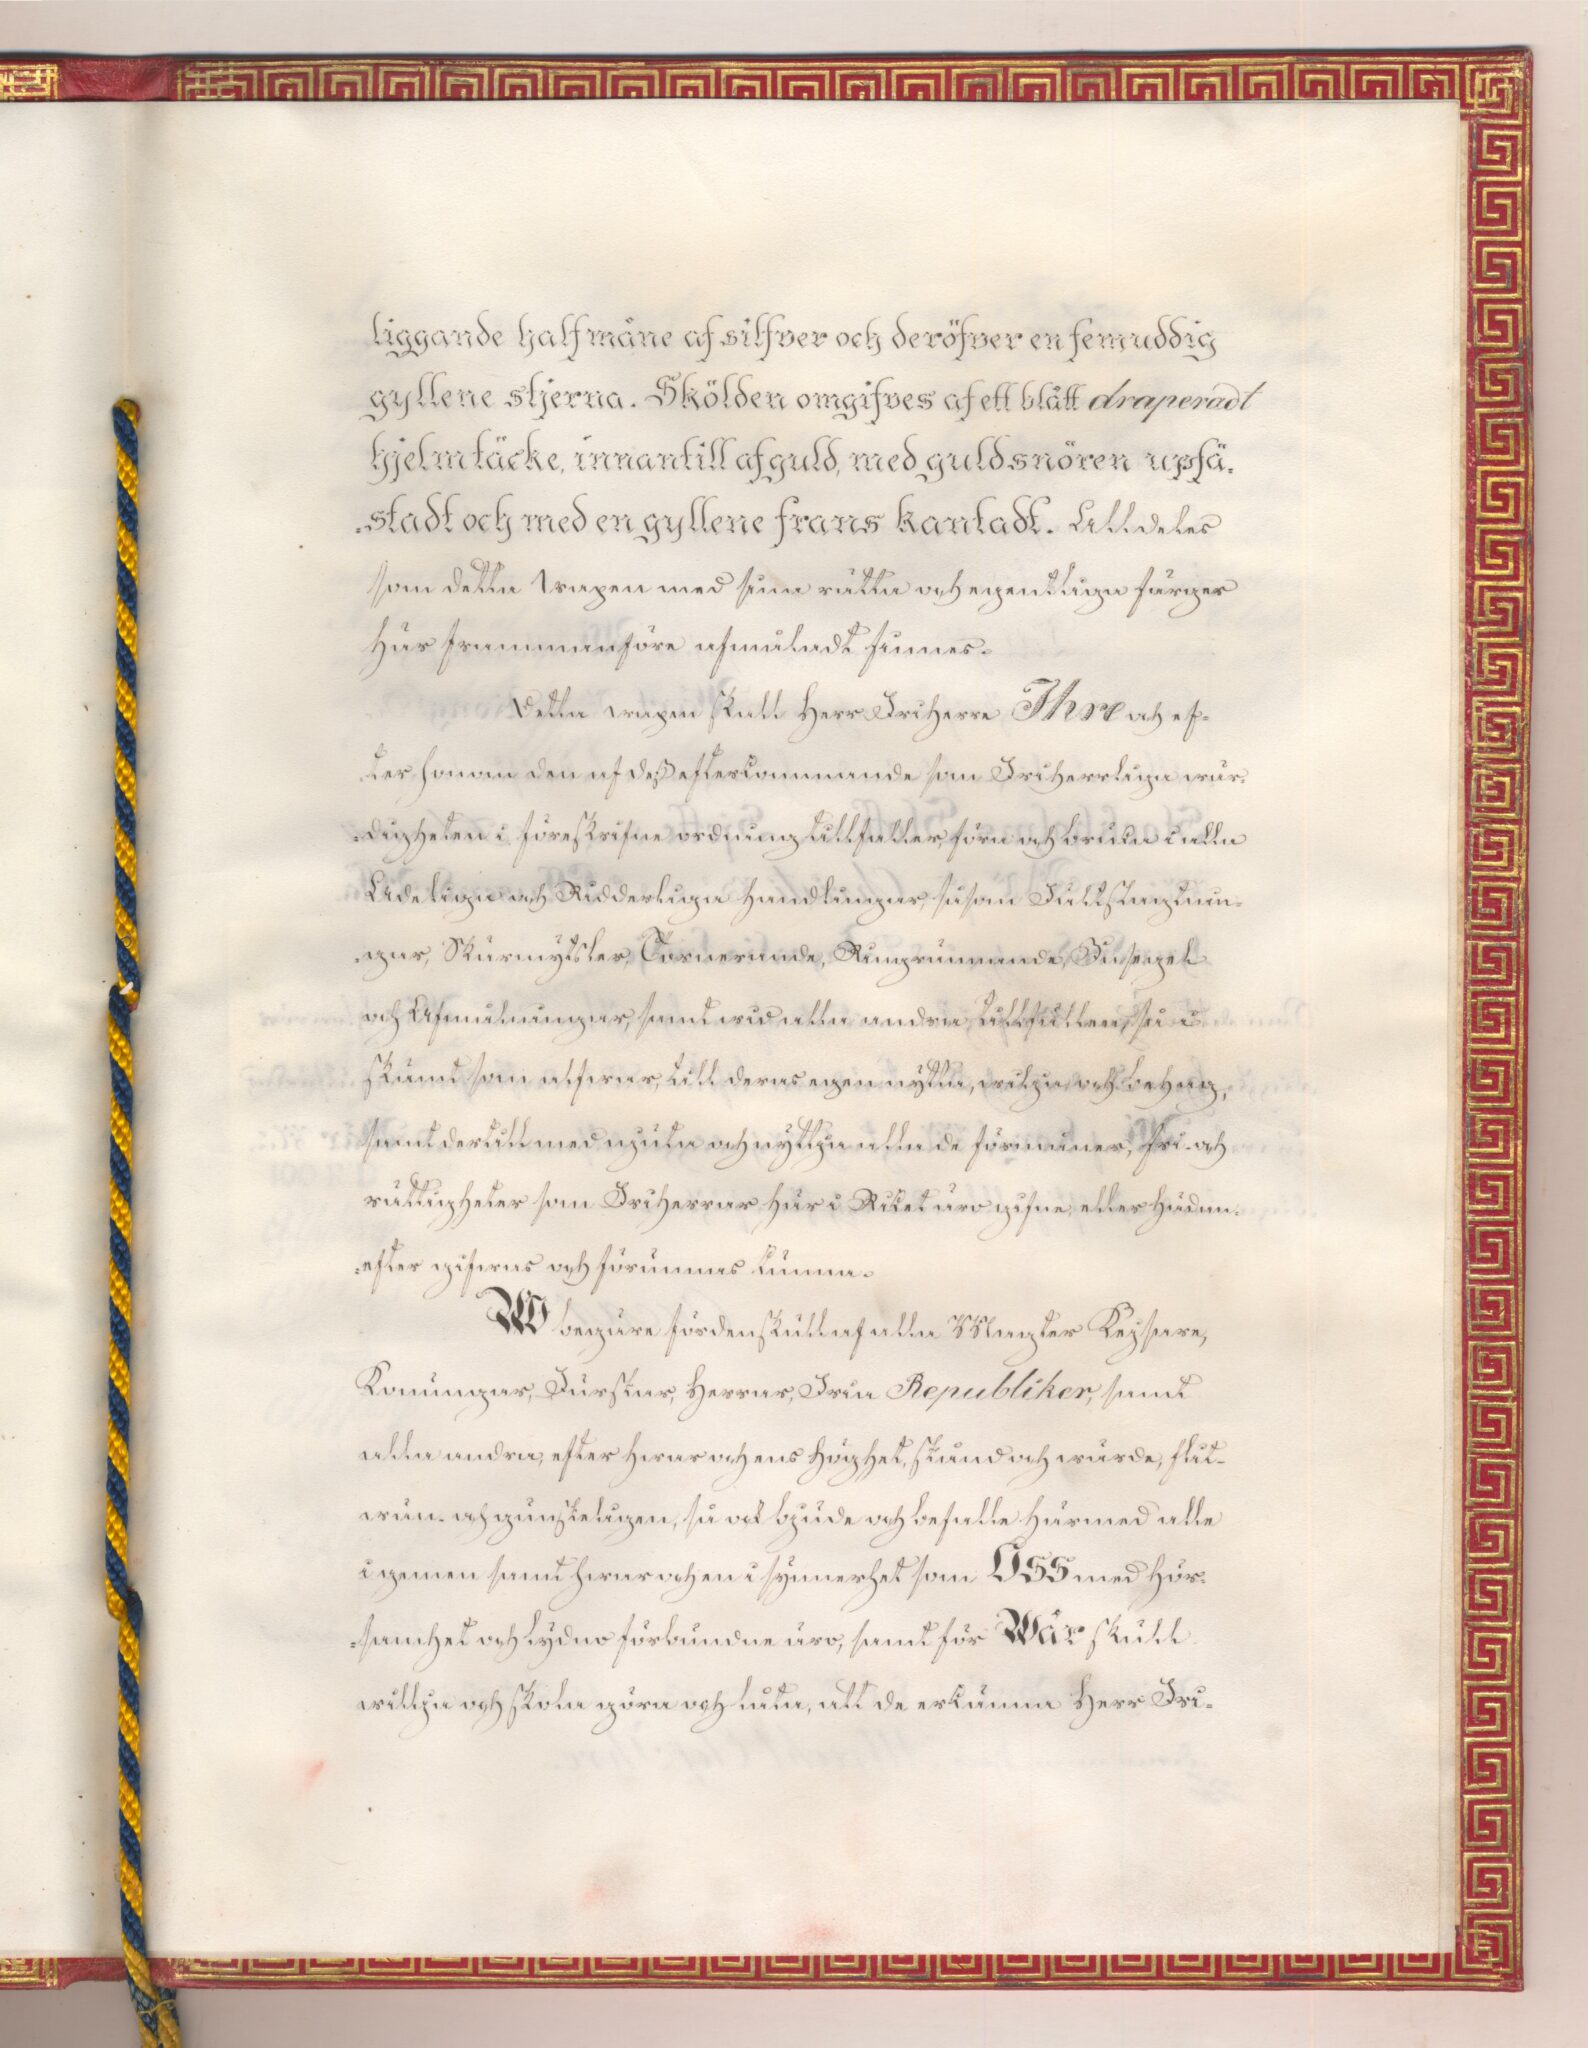 liggande halfmåne af silfver och deröfver en femuddig
gyllene stjerna. Skölden omgifves af ett blått draperadt
hjelmtäcke, innantill af guld, med guldsnören upfä-
-stadt och med en gyllene frans kantadt. Alldeles
som detta wapen med sina rätta och egentliga färger
här frammanföre afmåladt finnes.
Detta wapen skall Herr FriHerre Ihre och ef-
-ter honom den af deß efterkommande som Friherrliga wär-
-digheten i föreskrifne ordning tillfaller, föra och bruka i alla
Adeliga och Ridderliga Handlingar, såsom Fältslagtnin-
-gar, Skärmytsler, Tornerande, Ringrännande, Insegel
och Afmålningar, samt wid alla andra tillfällen, så i
skämt som alfwar, till deras egen nytta, wilja och behag,
samt dertill med njuta och nyttja alla de förmåner, fri- och
rättigheter som FriHerrar här i Riket äro gifne, eller hädan-
-efter gifwas och förunnas kunna.
Wi begäre fördenskull af alla Magter Kejsare,
Konungar, Furstar, Herrar, Fria Republiker, samt
alla andra, efter hwar och ens Höghet, stånd och wärde, flit-
wän- och gunsteligen, så ock bjude och befalle härmed alle
i gemen samt hwar och en i synnerhet som Oss med hör-
-samhet och lydno förbundne äro, samt för Wår skull
willja och skola göra och låta, att de erkänna Herr Fri-